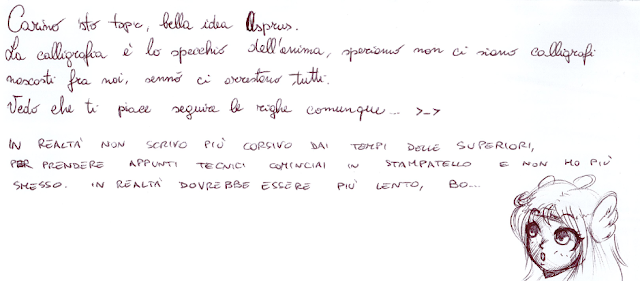 Carino 'sto topic, bella idea Asprus.
La calligrafia è lo specchio dell'anima, speriamo non ci siano calligrafi
nascosti fra noi, sennò ci arrestano tutti.
Vedo che ti piace seguire le righe comunque... >_>
IN REALTÀ NON SCRIVO PIÙ CORSIVO DAI TEMPI DELLE SUPERIORI,
PER PRENDERE APPUNTI TECNICI COMINCIAI IN STAMPATELLO E NON HO PIÙ
SMESSO. IN REALTÀ DOVREBBE ESSERE PIÙ LENTO, BO...